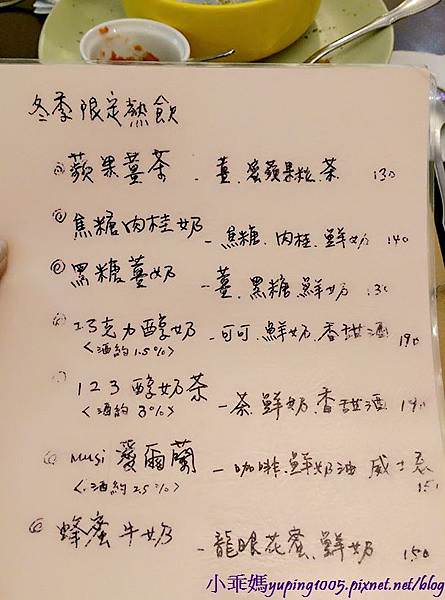 冬季限定熱飲
蘋果薑茶 - 薑.蜜蘋果粒.茶 130
焦糖肉桂奶 - 焦糖.肉桂.鮮奶 140
黑糖薑奶 - 薑.黑糖.鮮奶 130
巧克力醇奶 - 可可.鮮奶.香甜酒 190
<酒約1.5%>
123醇奶茶 - 茶.鮮奶.香甜酒 190
<酒約3%>
musi 愛爾蘭 - 咖啡.鮮奶油 威士忌
<酒約2.5%> 150
蜂蜜牛奶 - 龍眼花蜜.鮮奶 150
小乖媽yuping1005.pixnet.net/blog